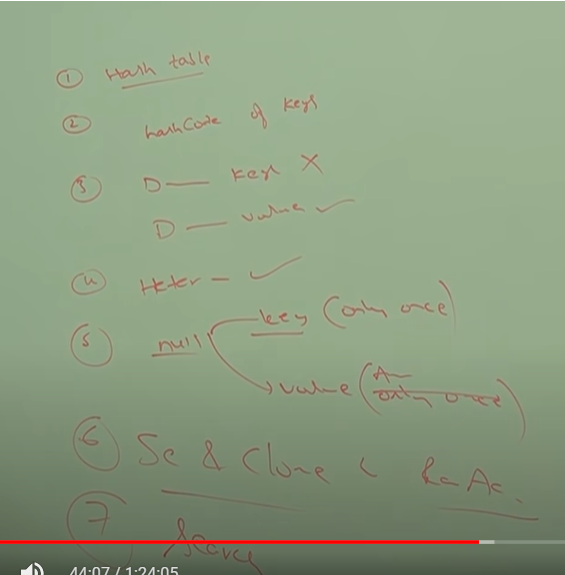 ① Hash table
② hashCode of keys
③ D— key X
D— value ✓
④ Heter— ✓
⑤ null key (only once)
value (A— only once)
⑥ Se & Clone < Ra Ac.
⑦ Search
44:07 / 1:24:05